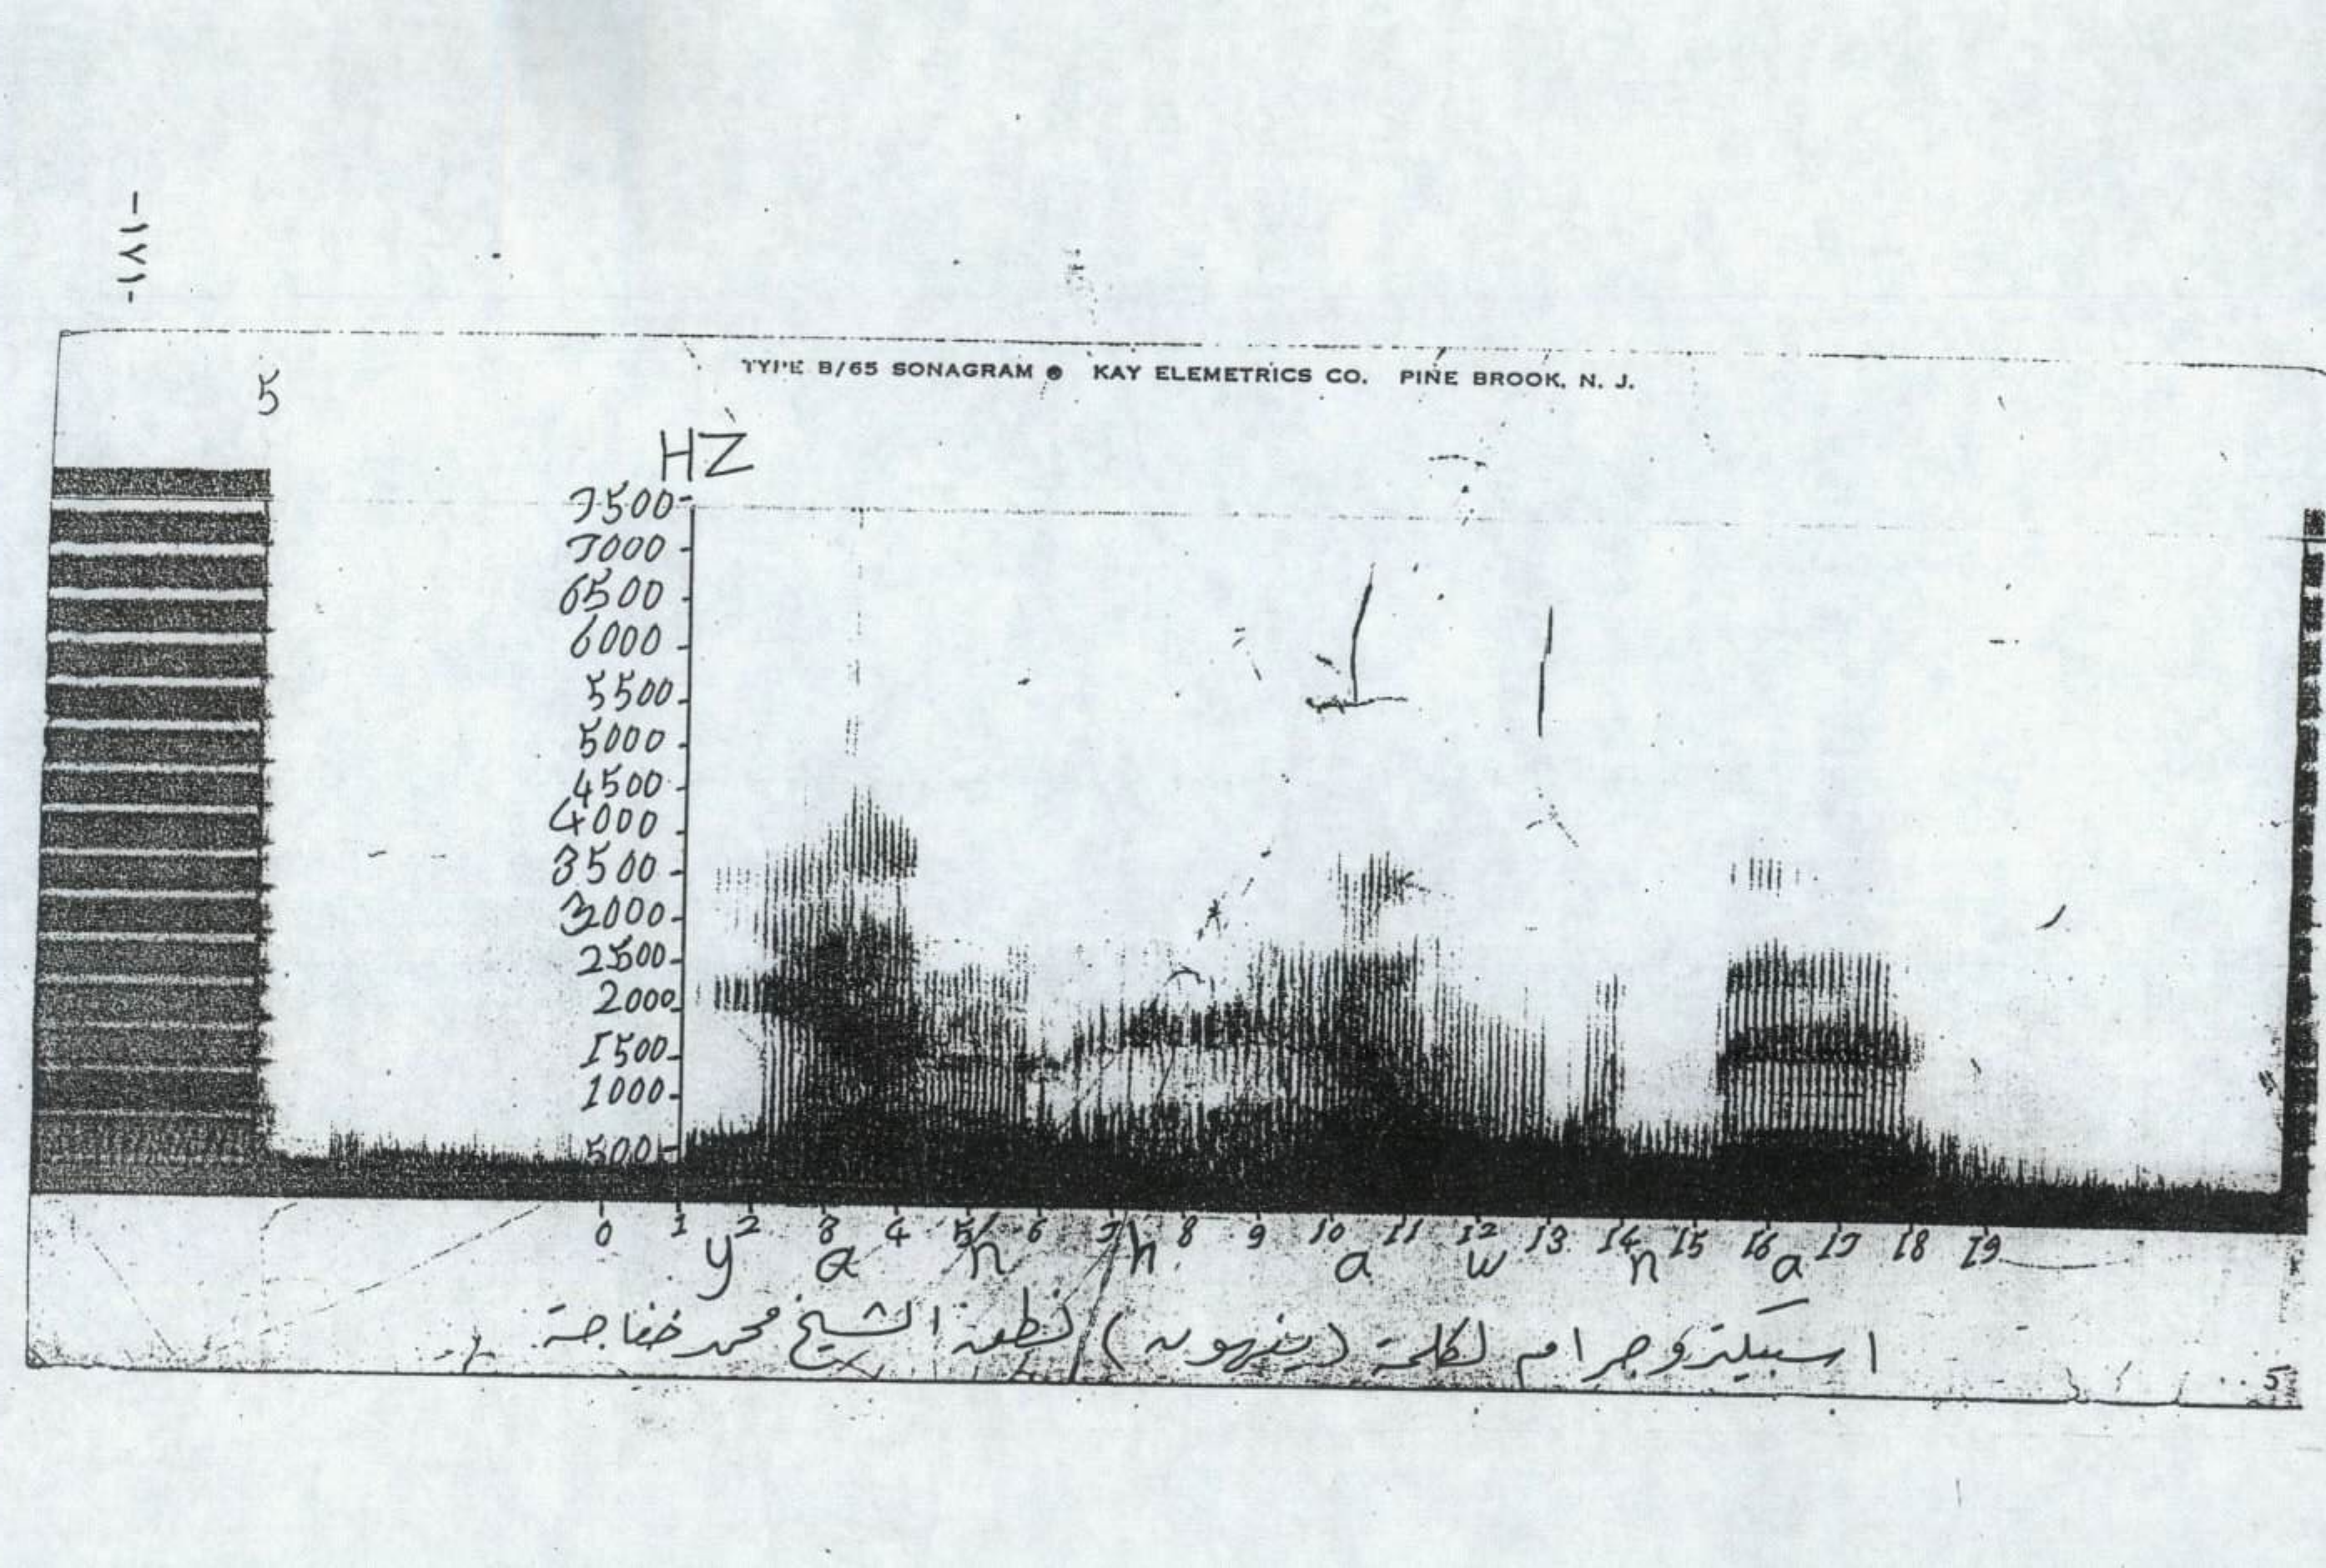 -١٧١-
5
TYPE B/65 SONAGRAM ® KAY ELEMETRICS CO. PINE BROOK, N. J.
HZ
7500
7000
6500
6000
5500
5000
4500
4000
3500
3000
2500
2000
1500
1000
500
0 1 2 3 4 5 6 7 8 9 10 11 12 13 14 15 16 17 18 19
y a n h a w n a
اسبكتروجرام لكلمة (ينهون) نطق الشيخ محمد خفاجة
5